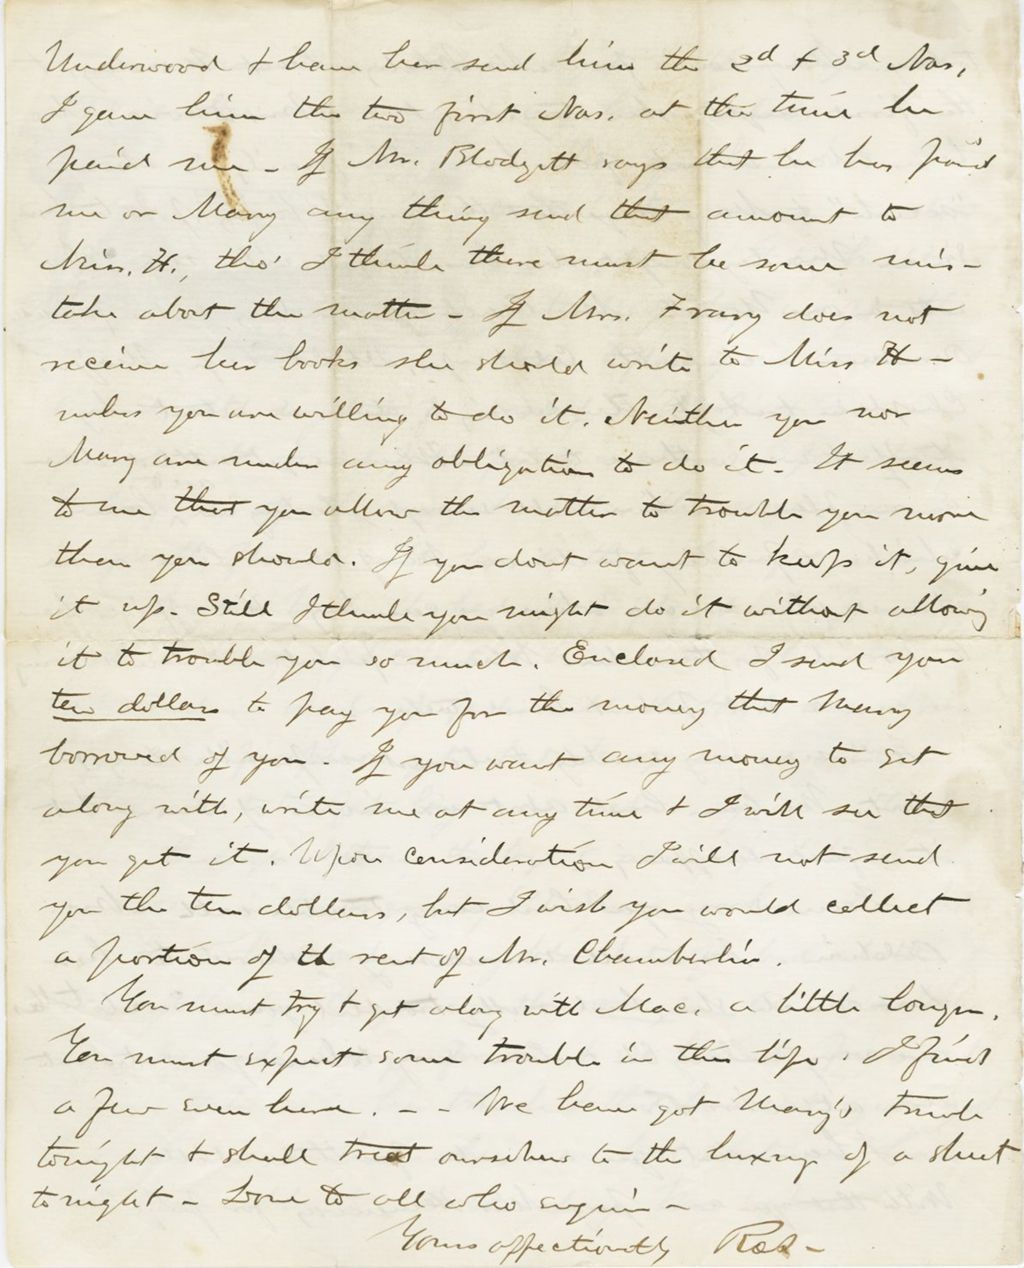 Underwood & have her send him the 2d & 3d Nos.
I gave him the two first Nos. at the time he
paid me - If Mr. Blodgett says that he has paid
me or Mary any thing send that amount to
Miss. H., tho' I think there must be some mis-
take about the matter - If Mrs. Frary does not
receive her books she should write to Miss H -
unless you are willing to do it. Neither you nor
Mary are under any obligation to do it. It seems
to me that you allow the matter to trouble you more
than you should. If you dont want to keep it, give
it up. Still I think you might do it without allowing
it to trouble you so much. Enclosed I send you
ten dollars to pay you for the money that Mary
borrowed of you. If you want any money to get
along with, write me at any time & I will see that
you get it. Upon consideration I will not send
you the ten dollars, but I wish you would collect
a portion of the rent of Mr. Chamberlin.
You must try & get along with Mac. a little longer.
You must expect some trouble in this life. I find
a few even here. - - We have got Mary's trunk
tonight & shall treat ourselves to the luxury of a sheet
tonight - Love to all who enquire -
Yours affectionately